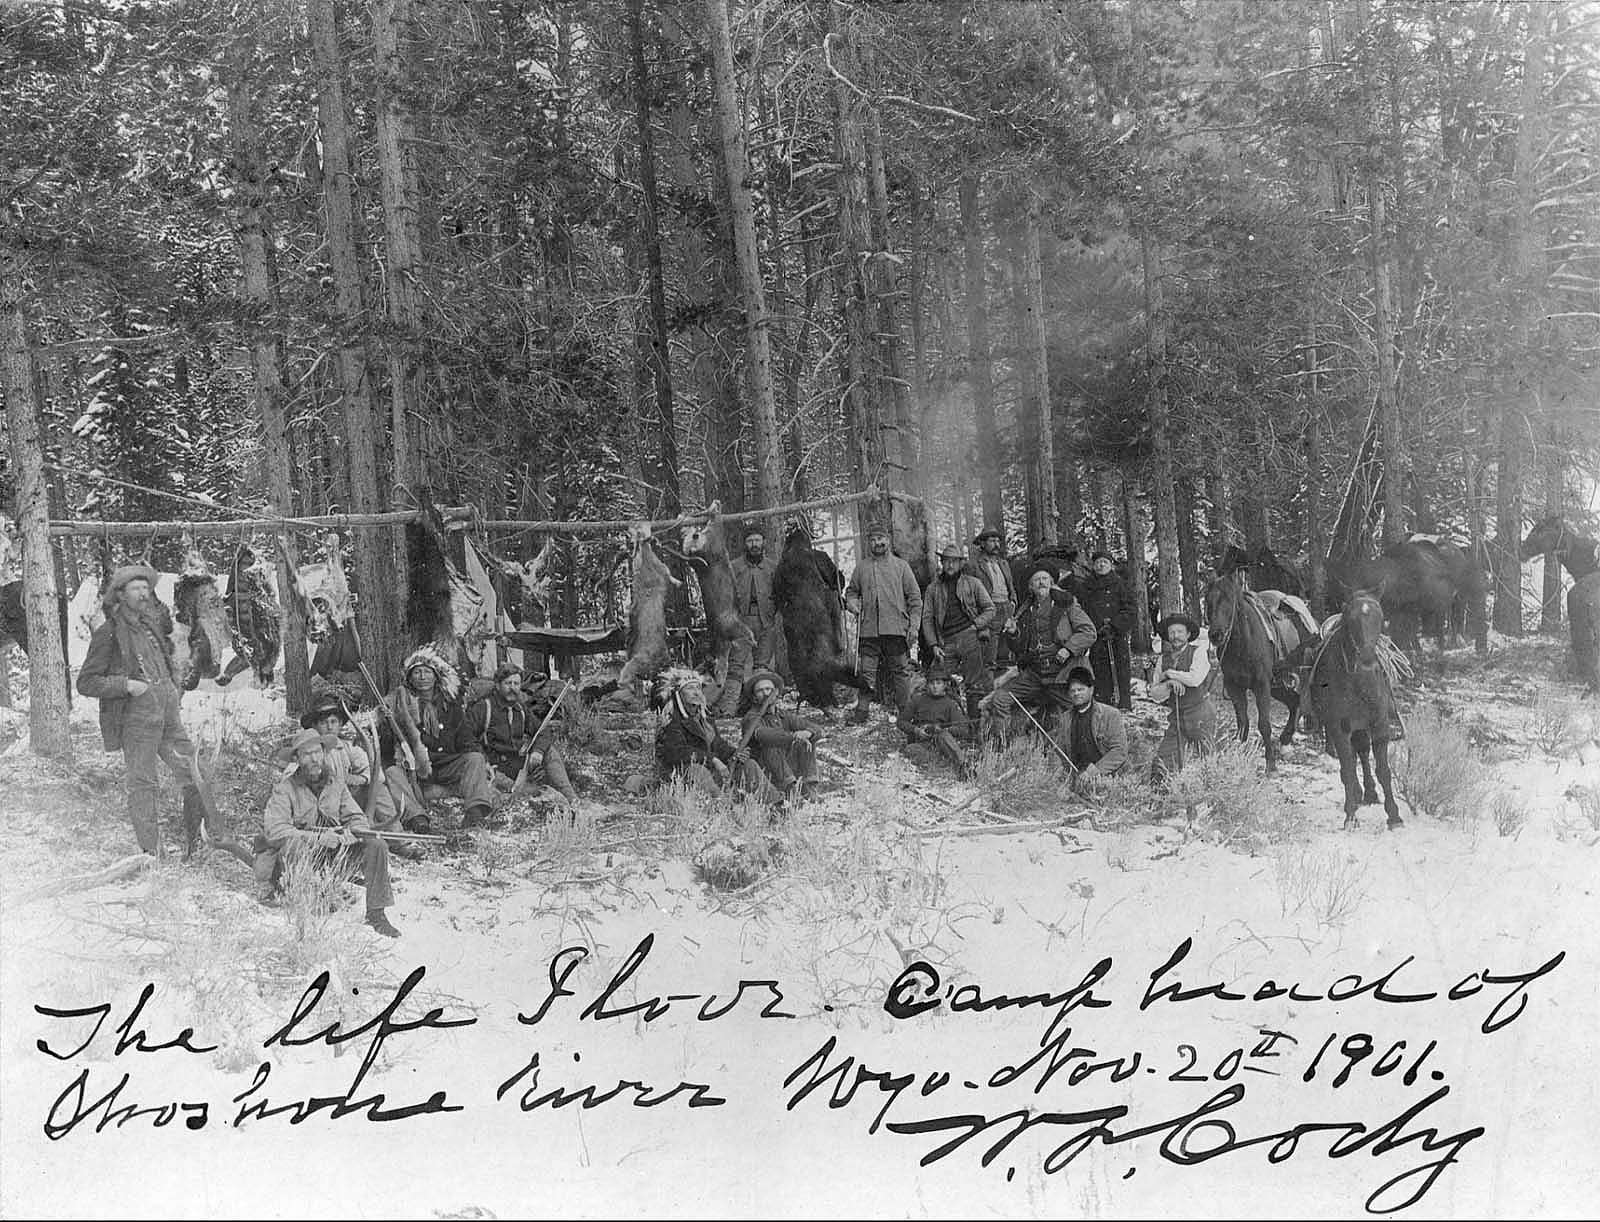 The life I love. Camp head of
Shoshone river Wyo. Nov. 20th 1901.
W. F. Cody